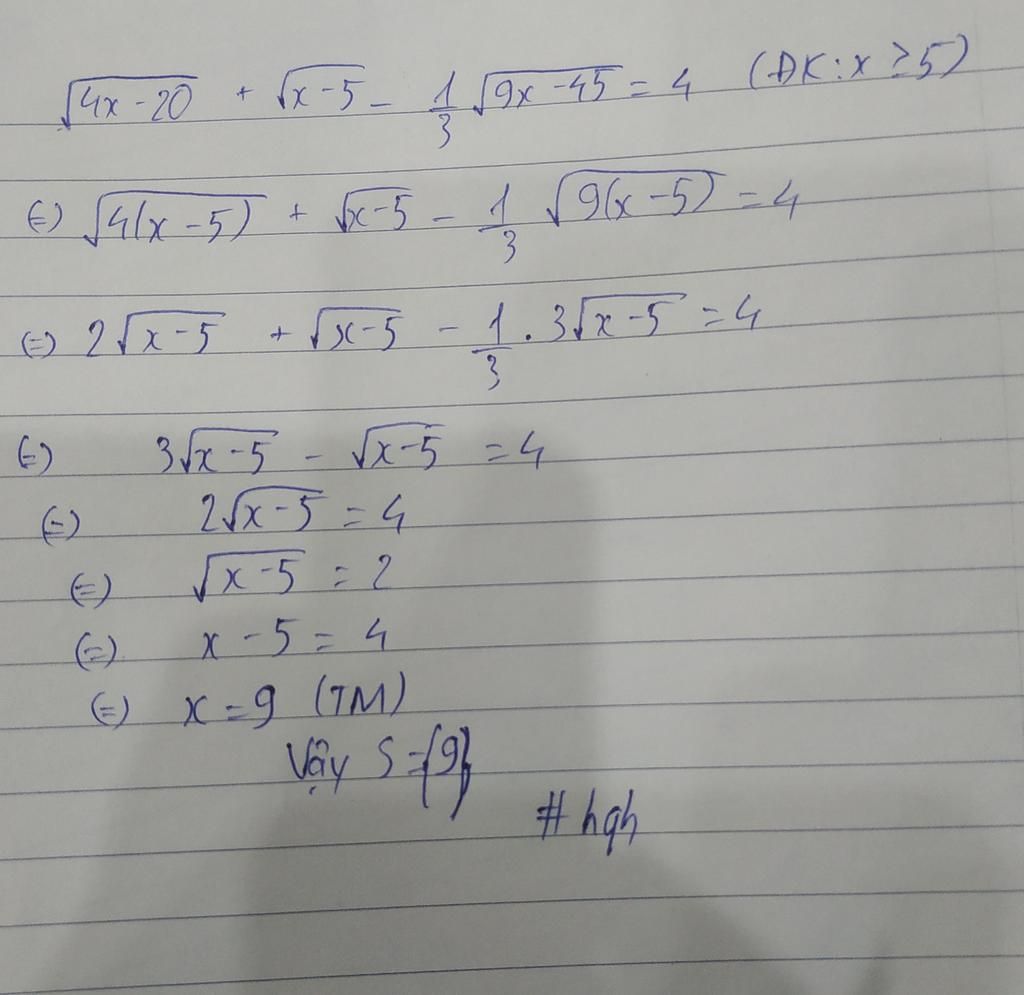 √(4x-20) + √(x-5) - 1/3 √(9x-45) = 4 (ĐK: x ≥ 5)
(=) √(4(x-5)) + √(x-5) - 1/3 √(9(x-5)) = 4
(=) 2√(x-5) + √(x-5) - 1/3 . 3√(x-5) = 4
(=) 3√(x-5) - √(x-5) = 4
(=) 2√(x-5) = 4
(=) √(x-5) = 2
(=) x - 5 = 4
(=) x = 9 (TM)
Vậy S = {9}
# hgh